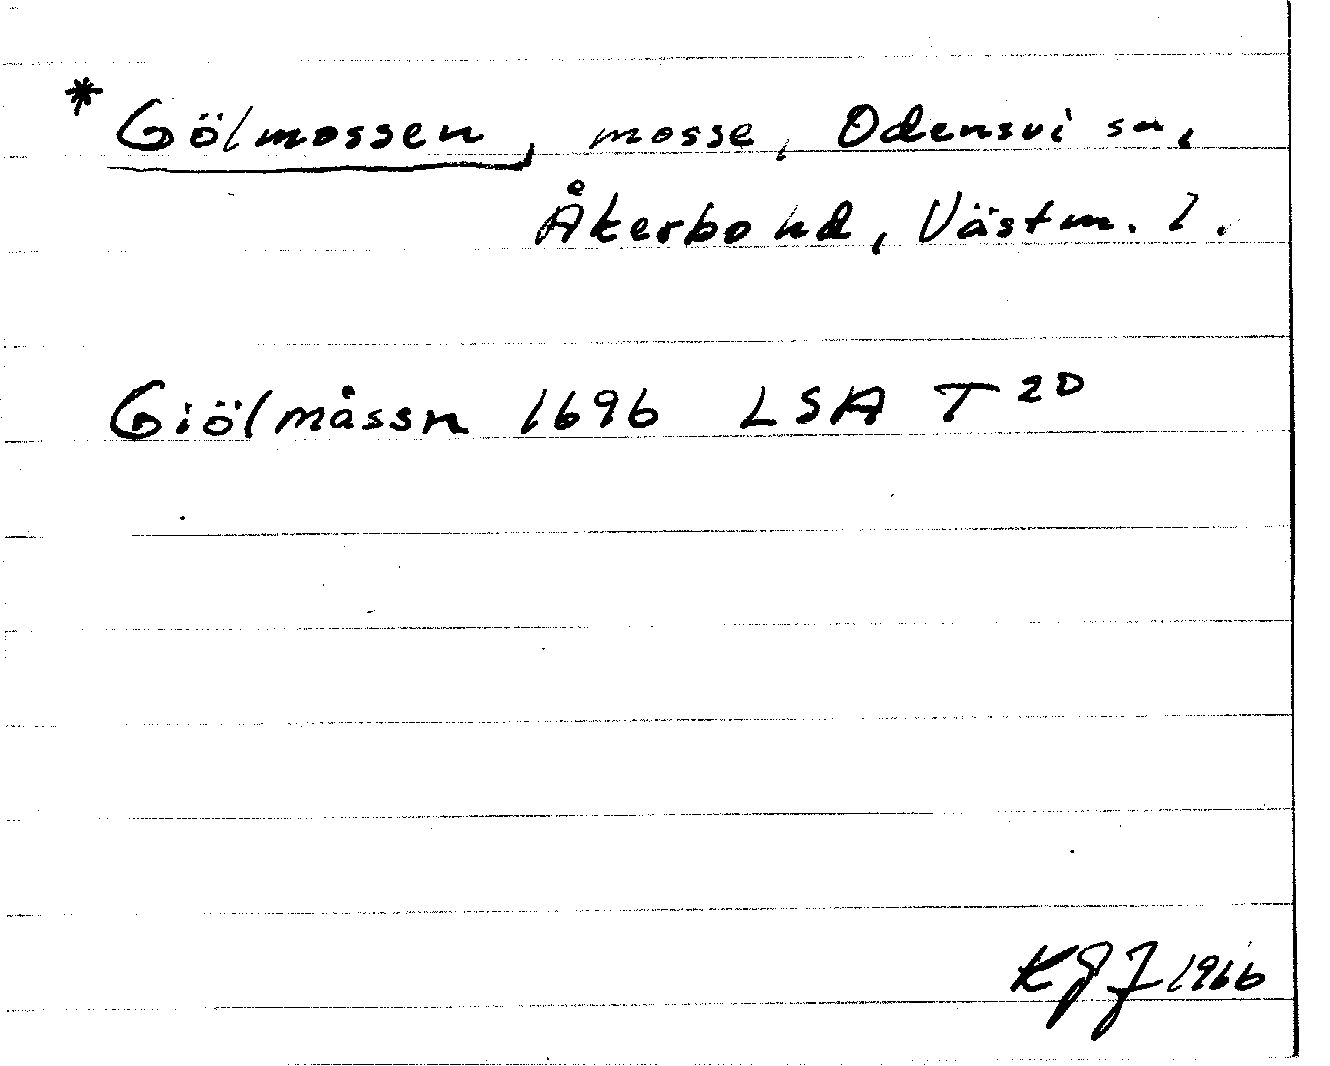 * Gölmossen, mosse, Odensvi sn,
Åkerbo hd, Västm. l.
Giölmåssn 1696 LSA T 20
KGJ 1966